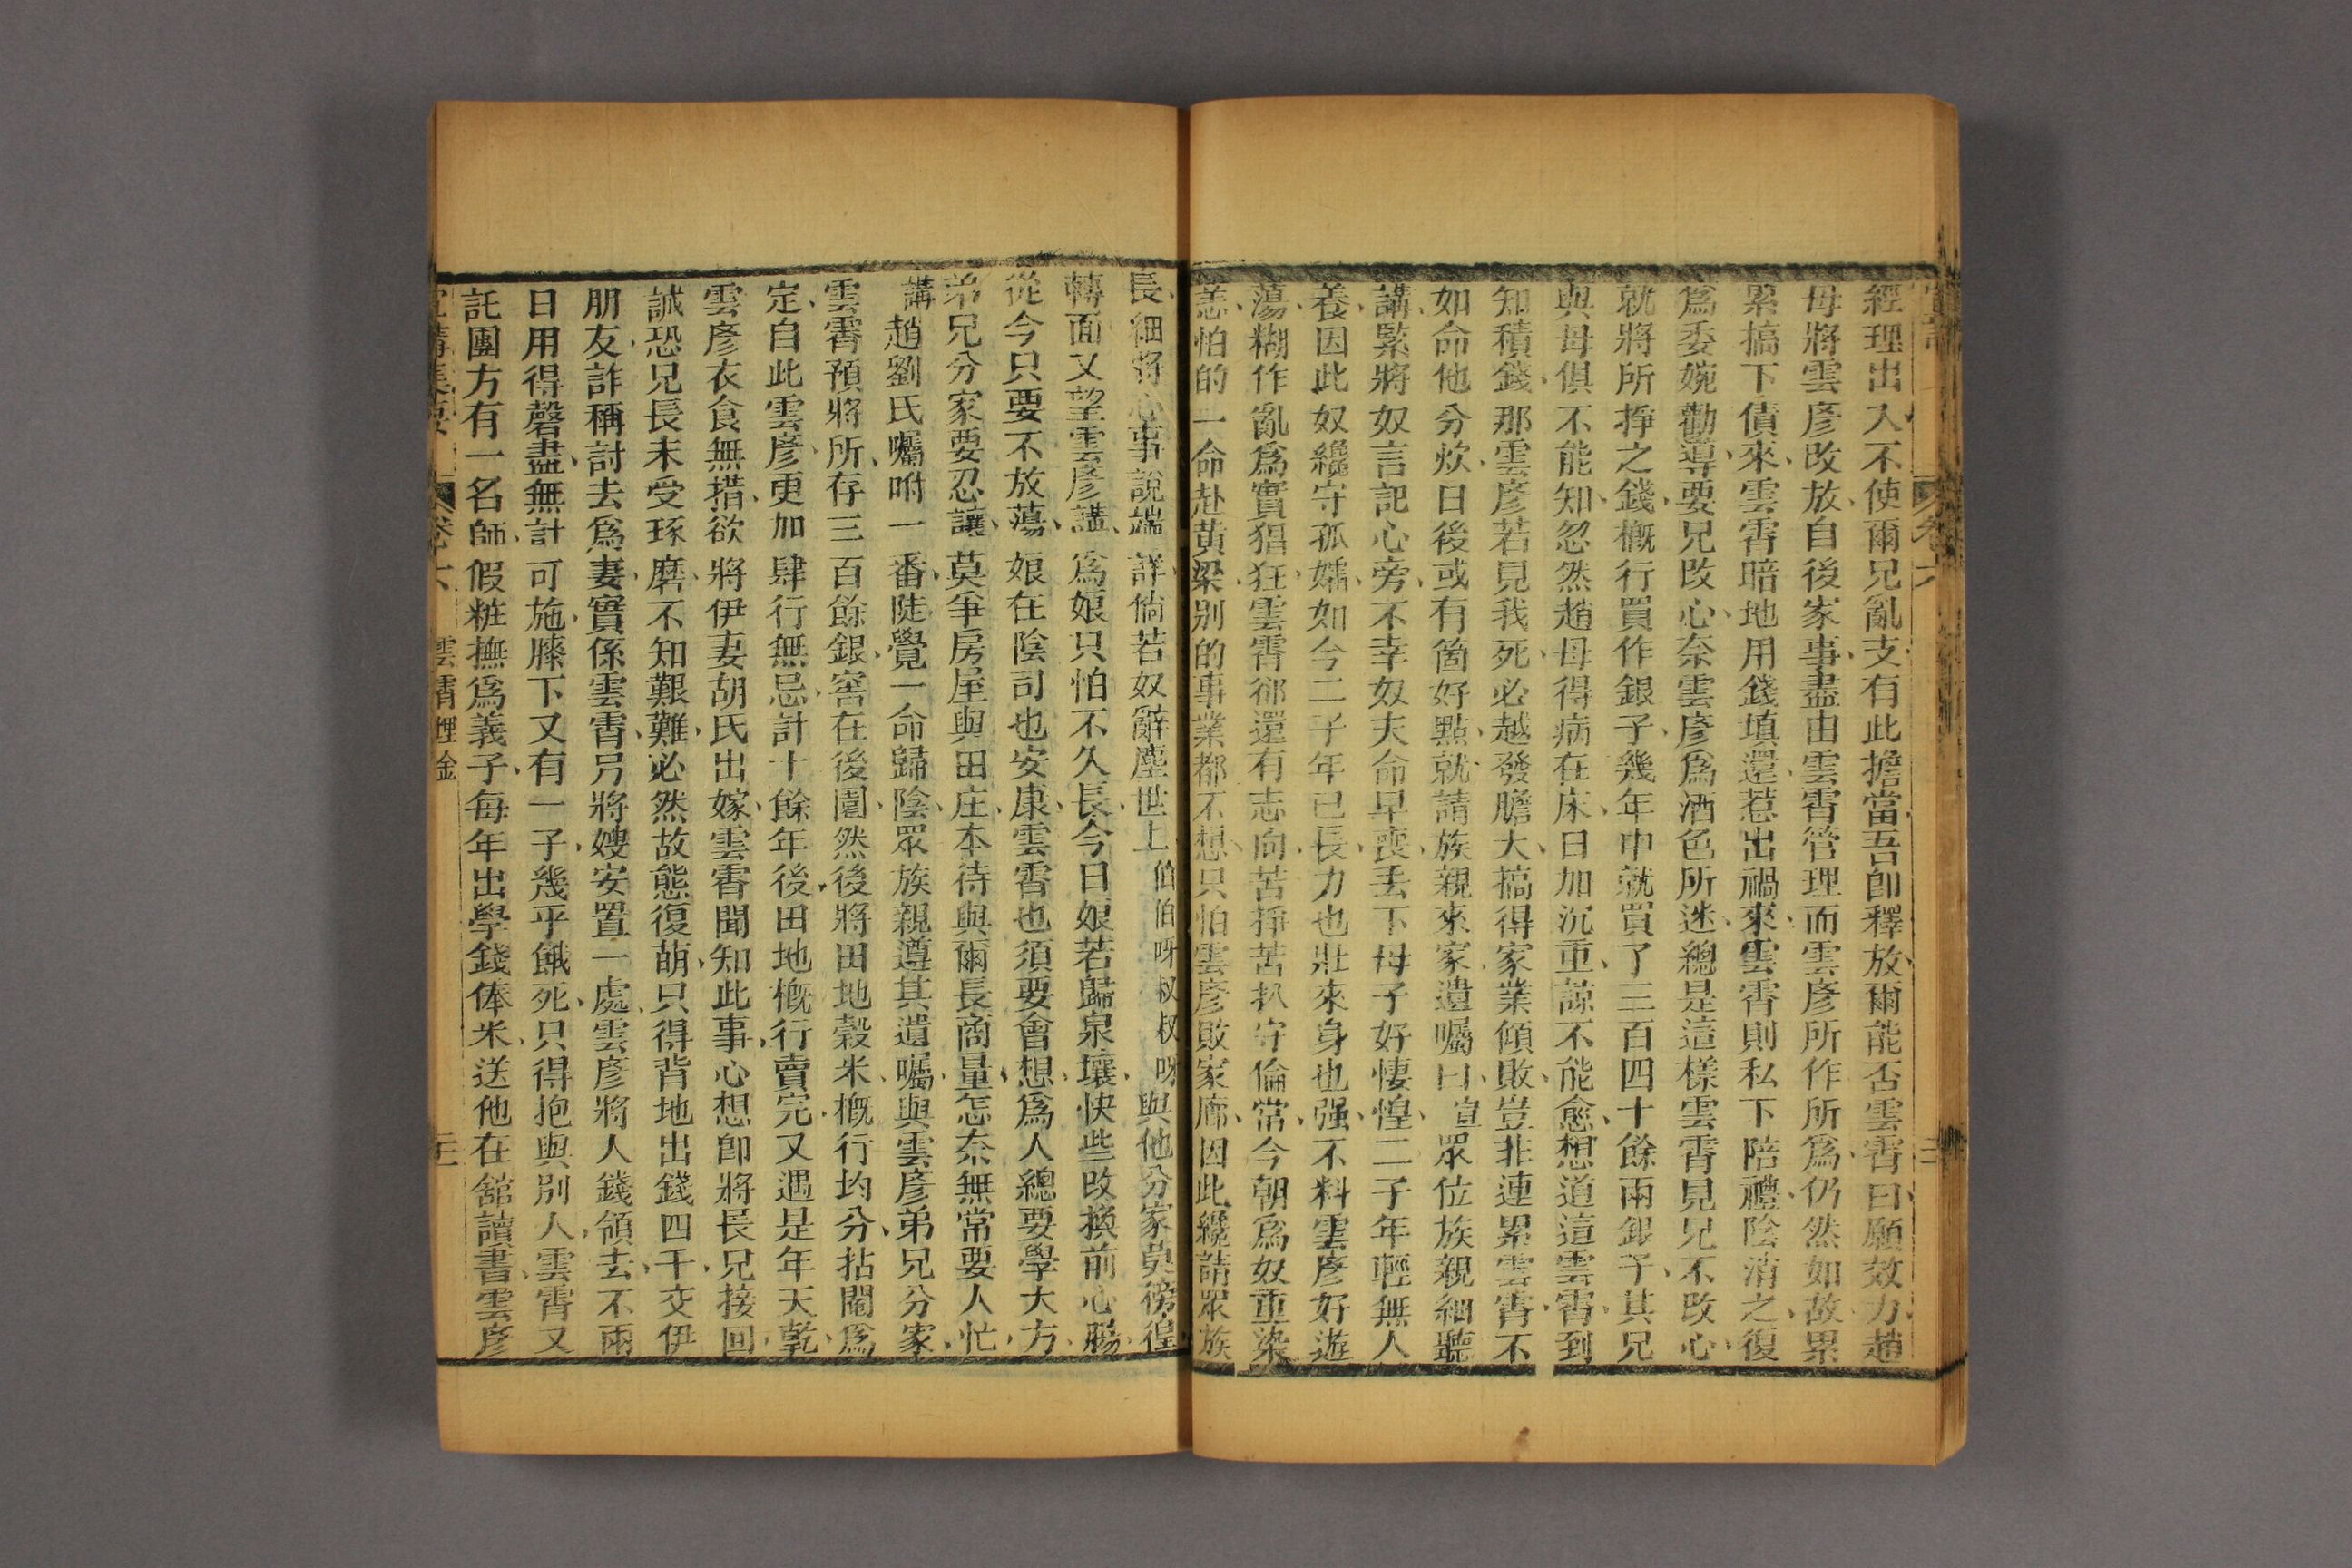 經理出入不使爾兄亂支有此擔當吾卽釋放爾能否雲霄曰願效力趙
母將雲彥改放自後家事盡由雲霄管理而雲彥所作所爲仍然如故累
累搞下債來雲霄暗地用錢填還惹出禍來雲霄則私下陪禮陰消之復
爲委婉勸導要兄改心奈雲彥爲酒色所迷總是這樣雲霄見兄不改心
就將所掙之錢概行買作銀子幾年中就買了三百四十餘兩銀子其兄
與母俱不能知忽然趙母得病在床日加沉重諒不能愈想道這雲霄到
知積錢那雲彥若見我死必越發膽大搞得家業傾敗豈非連累雲霄不
如命他分炊日後或有箇好點就請族親來家遺囑曰宣眾位族親細聽
講緊將奴言記心旁不幸奴夫命早喪丢下母子好悽惶二子年輕無人
養因此奴纔守孤孀如今二子年已長力也壯來身也强不料雲彥好遊
蕩糊作亂爲實猖狂雲霄郤還有志向苦掙苦扒守倫常今朝爲奴重染
恙怕的一命赴黃梁别的事業都不想只怕雲彥敗家廊因此纔請眾族
長細將心事說端詳倘若奴辭塵世上伯伯呀叔叔呀與他分家莫徬徨
轉面又望雲彥講爲娘只怕不久長今日娘若歸泉壤快些改換前心腸
從今只要不放蕩娘在陰司也安康雲霄也須要會想爲人總要學大方
弟兄分家要忍讓莫爭房屋與田庄本待與爾長商量怎奈無常要人忙
講趙劉氏囑咐一番陡覺一命歸陰眾族親遵其遺囑與雲彥弟兄分家
雲霄預將所存三百餘銀窖在後園然後將田地穀米概行均分拈鬮爲
定自此雲彥更加肆行無忌計十餘年後田地概行賣完又遇是年天乾
雲彥衣食無措欲將伊妻胡氏出嫁雲霄聞知此事心想卽將長兄接回
誠恐兄長未受琢磨不知艱難必然故態復萌只得背地出錢四千交伊
朋友詐稱討去爲妻實係雲霄另將嫂安置一處雲彥將人錢領去不兩
日用得罄盡無計可施膝下又有一子幾乎餓死只得抱與別人雲霄又
託團方有一名師假粧撫爲義子每年出學錢俸米送他在舘讀書雲彥
卷六 雲霄埋金